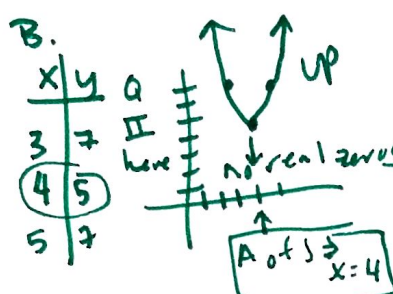 B.
x y
3 7
4 5
5 7
Q
II
here
up
no real zeros
A of S ⇒
x=4